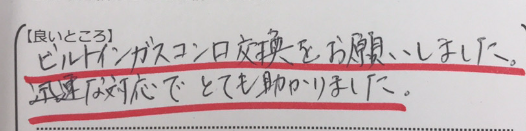 【良いところ】
ビルトインガスコンロ交換をお願いしました。
迅速な対応でとても助かりました。